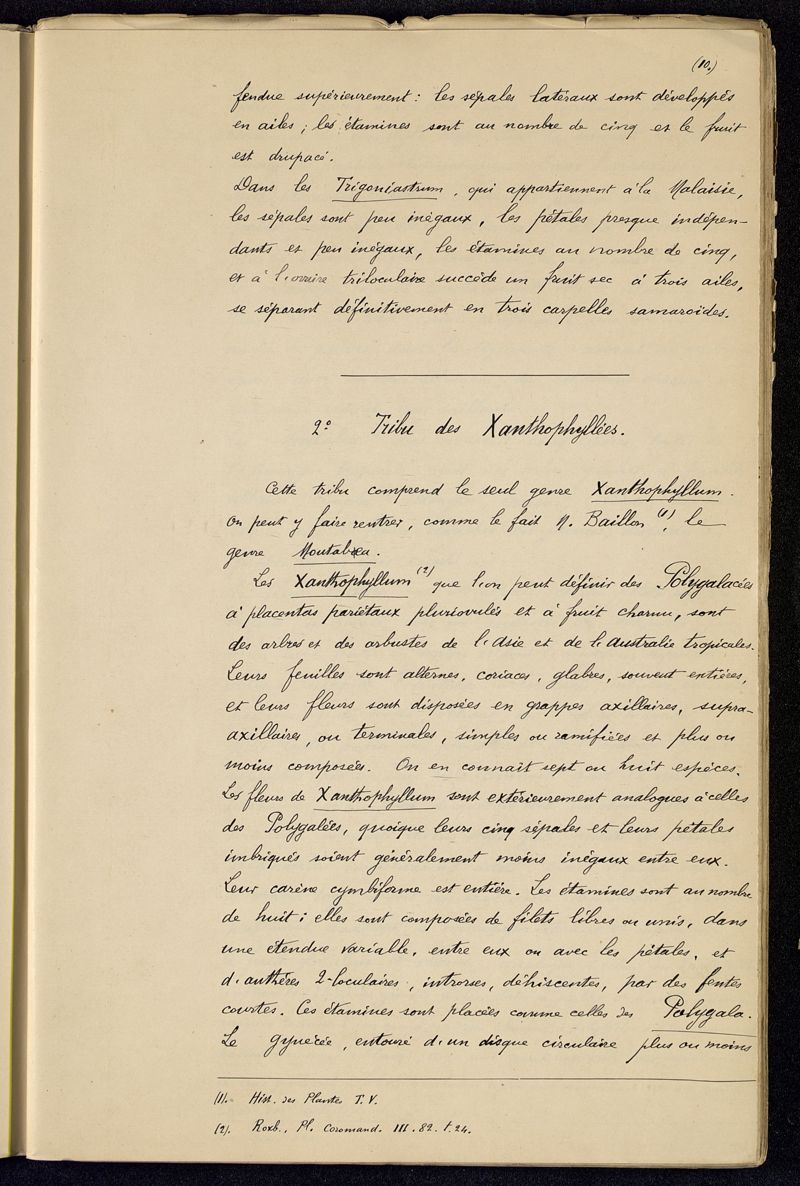 (10.)
fendue supérieurement : les sépales latéraux sont développés
en ailes ; les étamines sont au nombre de cinq et le fruit
est drupacé.
Dans les Trigoniastrum, qui appartiennent à la Malaisie,
les sépales sont peu inégaux, les pétales presque indépen-
dants et peu inégaux, les étamines au nombre de cinq,
et à l'ovaire triloculaire succède un fruit sec à trois ailes,
se séparant définitivement en trois carpelles samaroïdes.
2° Tribu des Xanthophyllées.
Cette tribu comprend le seul genre Xanthophyllum.
On peut y faire rentrer, comme le fait M. Baillon (1), le
genre Moutabea.
Les Xanthophyllum (2) que l'on peut définir des Polygalacées
à placentas pariétaux pluriovulés et à fruit charnu, sont
des arbres et des arbustes de l'Asie et de l'Australie tropicales.
Leurs feuilles sont alternes, coriaces, glabres, souvent entières,
et leurs fleurs sont disposées en grappes axillaires, supra-
axillaires, ou terminales, simples ou ramifiées et plus ou
moins composées. On en connaît sept ou huit espèces.
Les fleurs de Xanthophyllum sont extérieurement analogues à celles
des Polygalées, quoique leurs cinq sépales et leurs pétales
imbriqués soient généralement moins inégaux entre eux.
Leur carène cymbiforme est entière. Les étamines sont au nombre
de huit ; elles sont composées de filets libres ou unis, dans
une étendue variable, entre eux ou avec les pétales, et
d'anthères 2-loculaires, introrses, déhiscentes, par des fentes
courtes. Ces étamines sont placées comme celles des Polygala.
Le gynécée, entouré d'un disque circulaire plus ou moins
(1). Hist. des Plantes T. V.
(2). Roxb., Pl. Coromand. III. 82. t. 24.